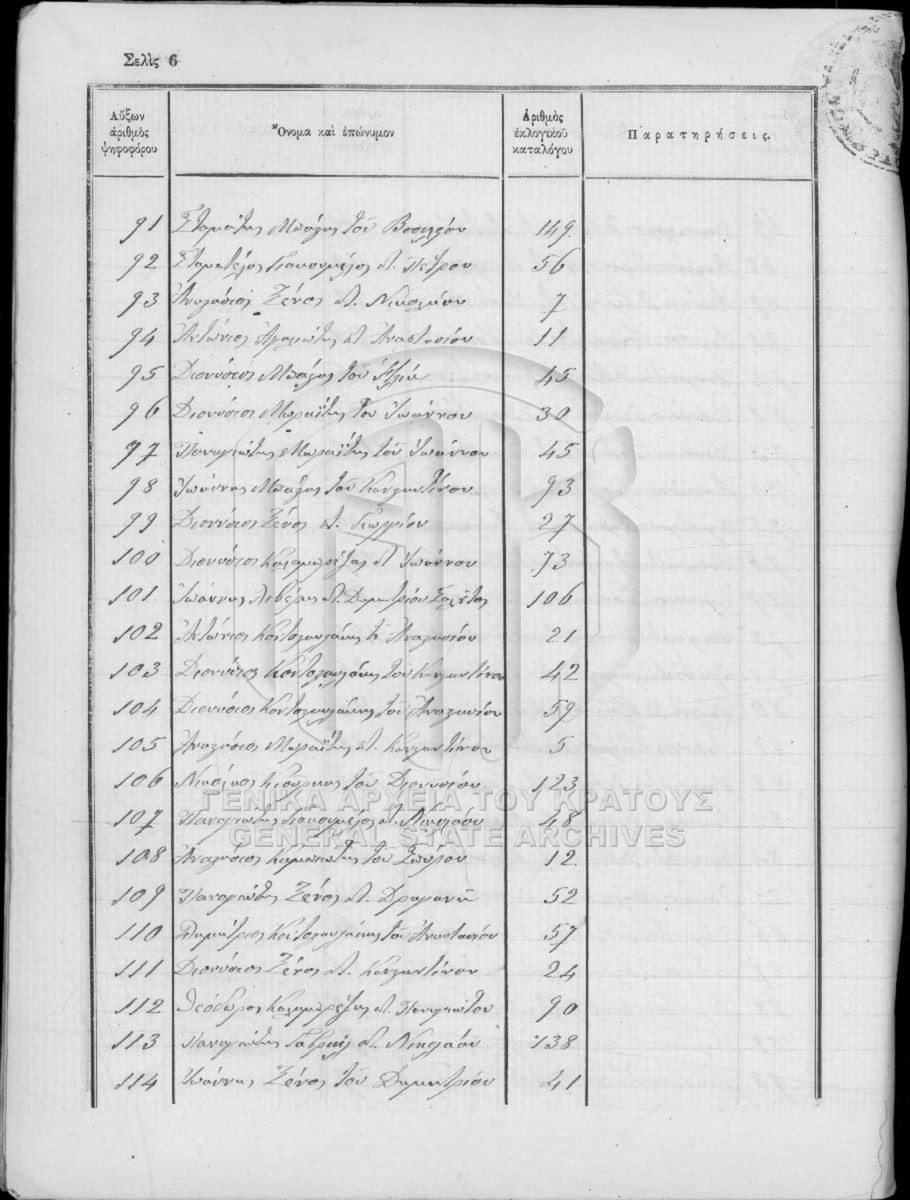 Σελὶς 6
Αὔξων ἀριθμὸς ψηφοφόρου
Ὄνομα καὶ ἐπώνυμον
Ἀριθμὸς ἐκλογικοῦ καταλόγου
Παρατηρήσεις.
91 Σταμάτης Μπάζας τοῦ Βασιλείου 149
92 Σταματέλος Γιακουμέλος τ. Πέτρου 56
93 Ἀναστάσιος Ξένος τ. Νικολάου 7
94 Ἀντώνιος τ. Ἀναστασίου 11
95 Διονύσιος Μπάζας τοῦ Ἠλία 45
96 Διονύσιος Μωραΐτης τοῦ Ἰωάννου 30
97 Παναγιώτης Μωραΐτης τοῦ Ἰωάννου 45
98 Ἰωάννης Μπάζας τοῦ Κωνσταντίνου 93
99 Διονύσιος Ξένος τ. Γεωργίου 27
100 Διονύσιος τ. Ἰωάννου 73
101 Ἰωάννης Λιβέρης τ. Δημητρίου 106
102 Ἀντώνιος τ. Ἀναστασίου 21
103 Διονύσιος τοῦ Κωνσταντίνου 42
104 Διονύσιος τοῦ Ἀναστασίου 59
105 Ἀναστάσιος Μωραΐτης τ. Κωνσταντίνου 5
106 Νικόλαος τοῦ Διονυσίου 123
107 Παναγιώτης Γιακουμέλος τ. Νικολάου 48
108 Ἀναστάσιος τοῦ Σπύρου 12
109 Παναγιώτης Ξένος τ. 52
110 Δημήτριος τοῦ Ἀναστασίου 57
111 Διονύσιος Ξένος τ. Κωνσταντίνου 24
112 Θεόδωρος τ. Παναγιώτου 90
113 Παναγιώτης Γαβριήλ τ. Νικολάου 138
114 Ἰωάννης Ξένος τοῦ Δημητρίου 41
ΓΕΝΙΚΑ ΑΡΧΕΙΑ ΤΟΥ ΚΡΑΤΟΥΣ
GENERAL STATE ARCHIVES